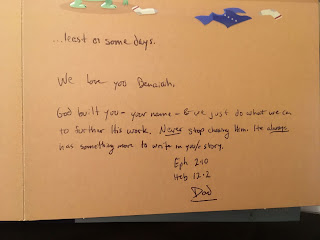 ...least on some days.
We love you Benaiah.
God built you - your name - & we just do what we can
to further His work. Never stop chasing Him. He always
has something more to write in your story.
Eph 2:10
Heb 12:2
Dad